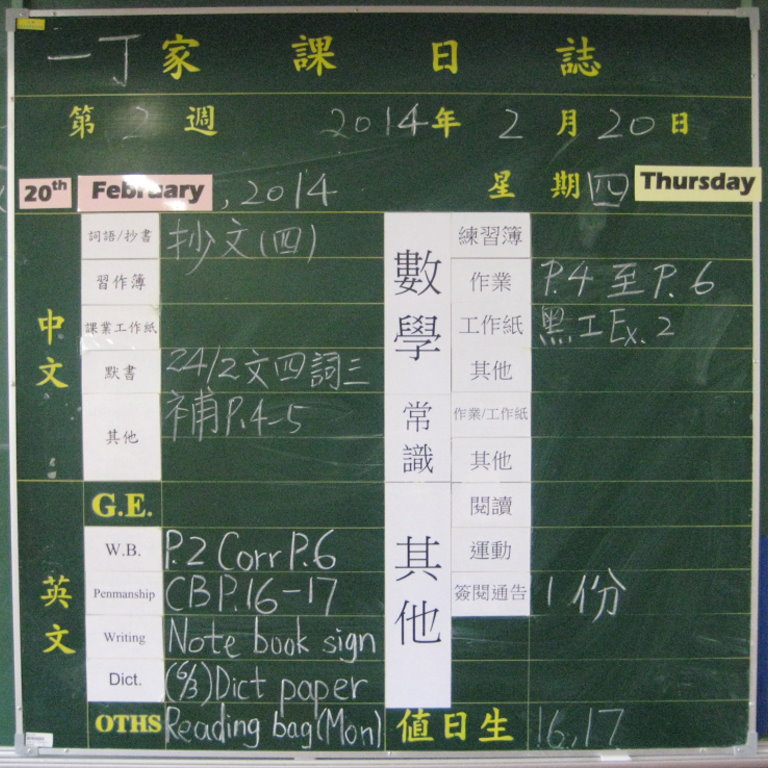 一丁家課日誌
第2週 2014年2月20日
20th February, 2014 星期四 Thursday
中文
詞語/抄書 抄文(四)
習作簿
課業工作紙
默書 24/2文四詞三
其他 補P.4-5
英文
G.E.
W.B. P.2 Corr P.6
Penmanship CBP.16-17
Writing Note book sign
Dict. (6/3)Dict paper
OTHS Reading bag(Mon)
數學
練習簿
作業 P.4至P.6
工作紙 黑工Ex.2
其他
常識
作業/工作紙
其他
其他
閱讀
運動
簽閱通告 1份
值日生 16,17